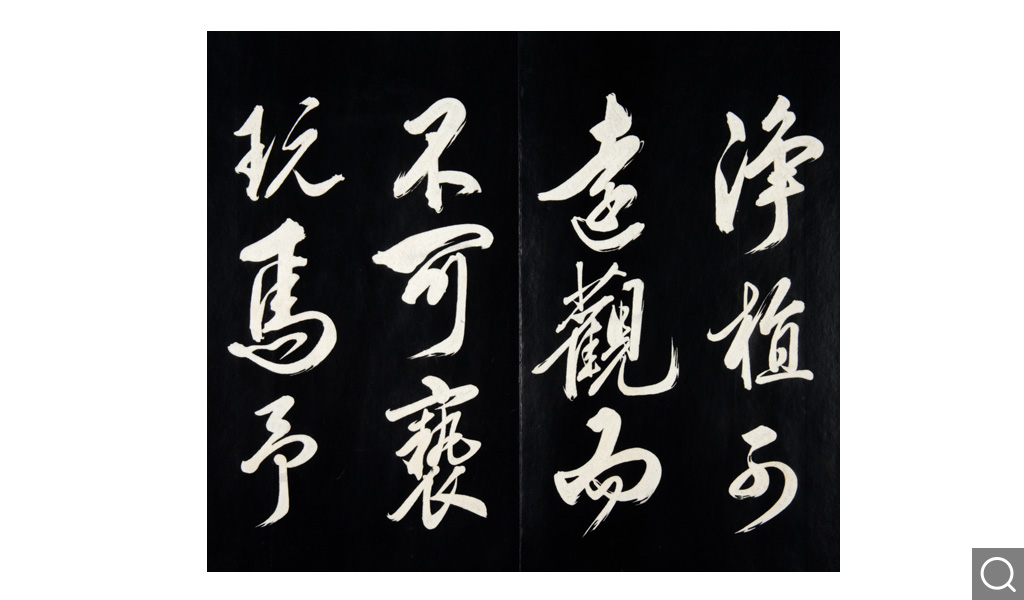 净植可
遠觀而
不可褻
玩焉予